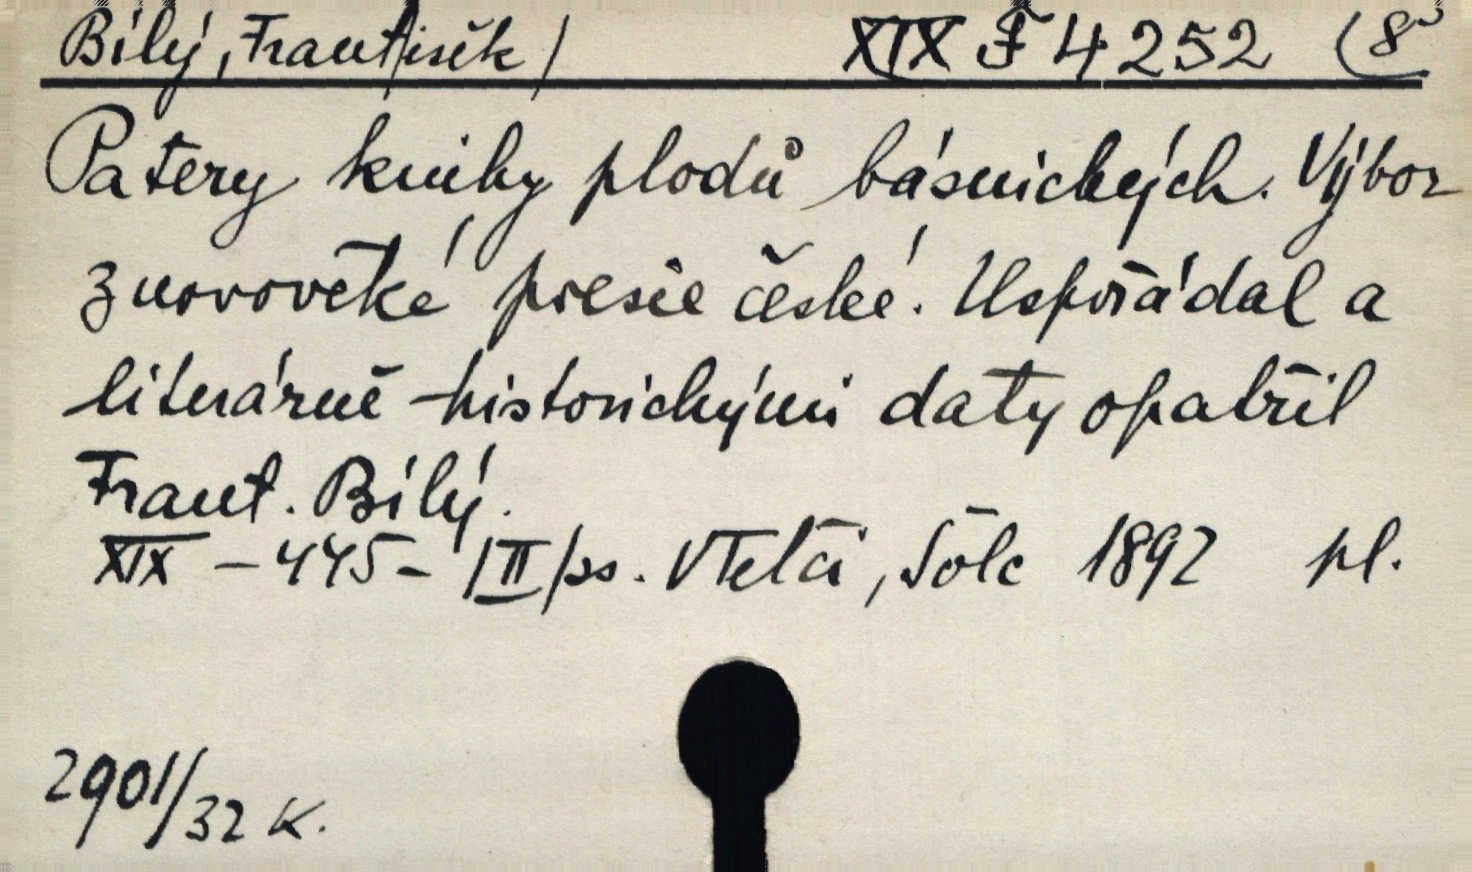 Bílý, František / XIX F 4252 (8°
Patery knihy plodů básnických. Výbor
z novověké poesie české. Uspořádal a
literárně-historickými daty opatřil
Frant. Bílý.
XIX – 445 – /II/ ss. V Telči, Šolc 1892 pl.
2901/32 K.